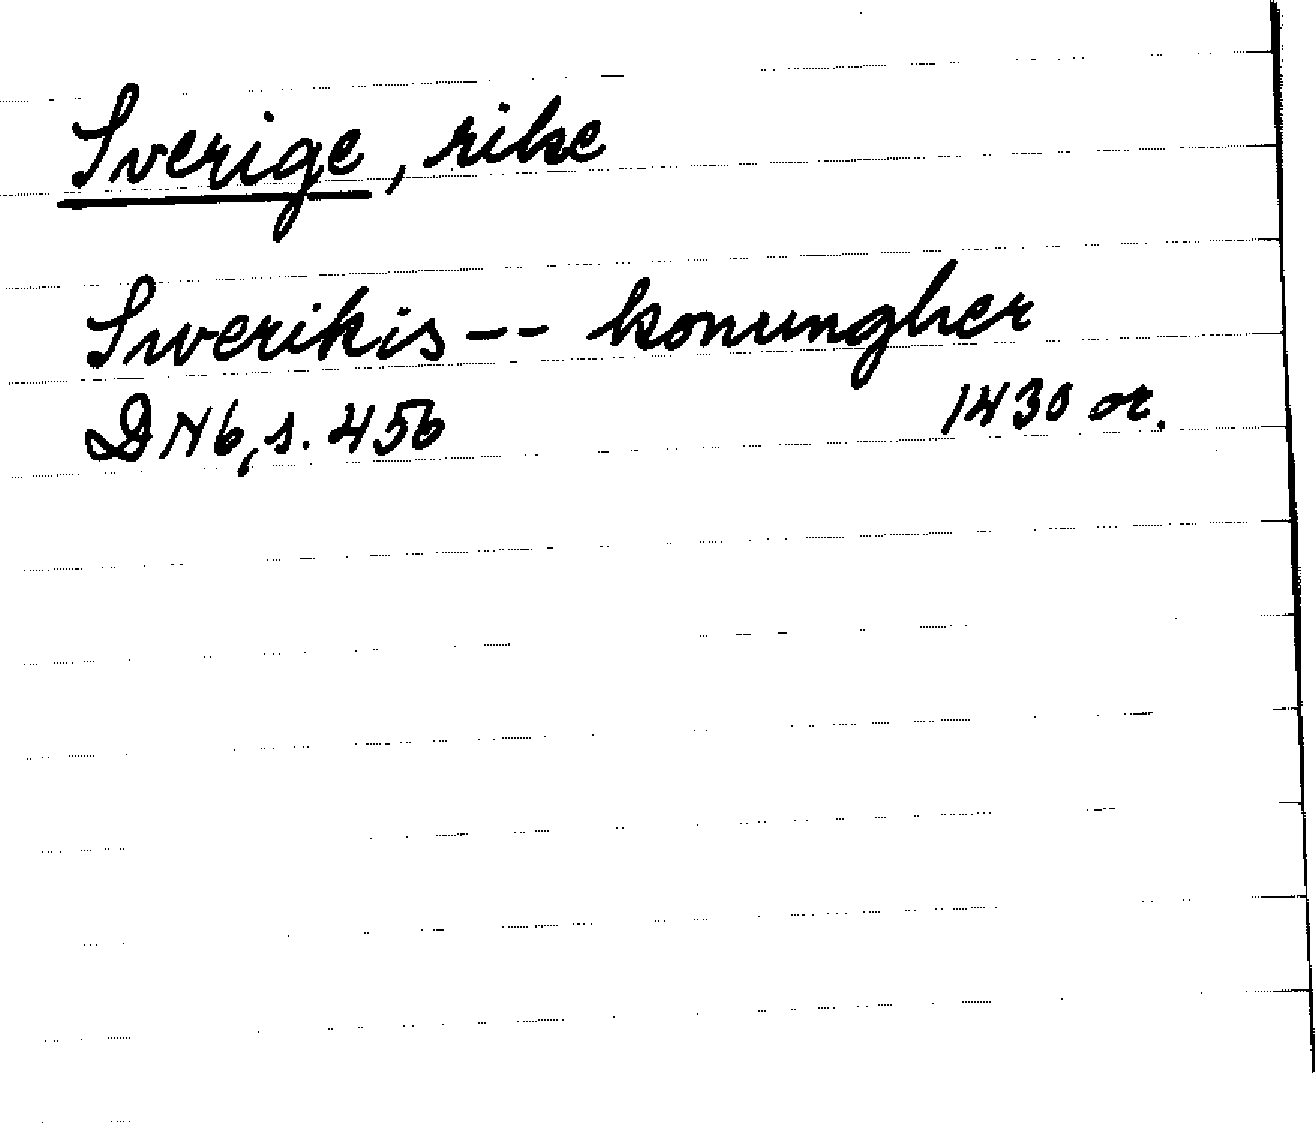 Sverige, rike
Swerikis -- konungher
DN6, s. 456 1430 or.